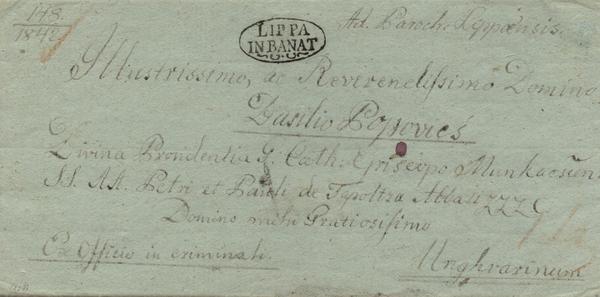 148.
1842
LIPPA
IN BANAT
Ad. Paroch. Lippensis.
Illustrissimo, ac Reverendissimo Domino
Basilio Popovics
Divina Providentia G. Cath. Episcopo Munkacsien.
SS. AA. Petri et Pauli de Tapoltza Abbati
Domino mihi Gratiosissimo
Ex Officio in criminali.
Unghvarinum